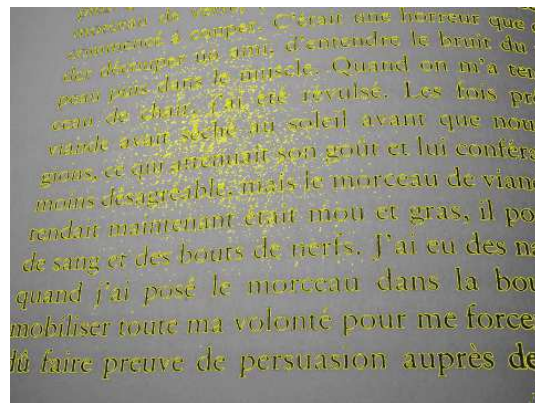 morceau de
commencé à couper. C'était une horreur que
der découper un ami, d'entendre le bruit du
peau puis dans le muscle. Quand on m'a ten
ceau de chair, j'ai été révulsé. Les fois pr
viande avait séché au soleil avant que nou
gions, ce qui atténuait son goût et lui confér
moins désagréable, mais le morceau de vian
tendait maintenant était mou et gras, il po
de sang et des bouts de nerfs. J'ai eu des na
quand j'ai posé le morceau dans la bou
mobiliser toute ma volonté pour me force
dû faire preuve de persuasion auprès de